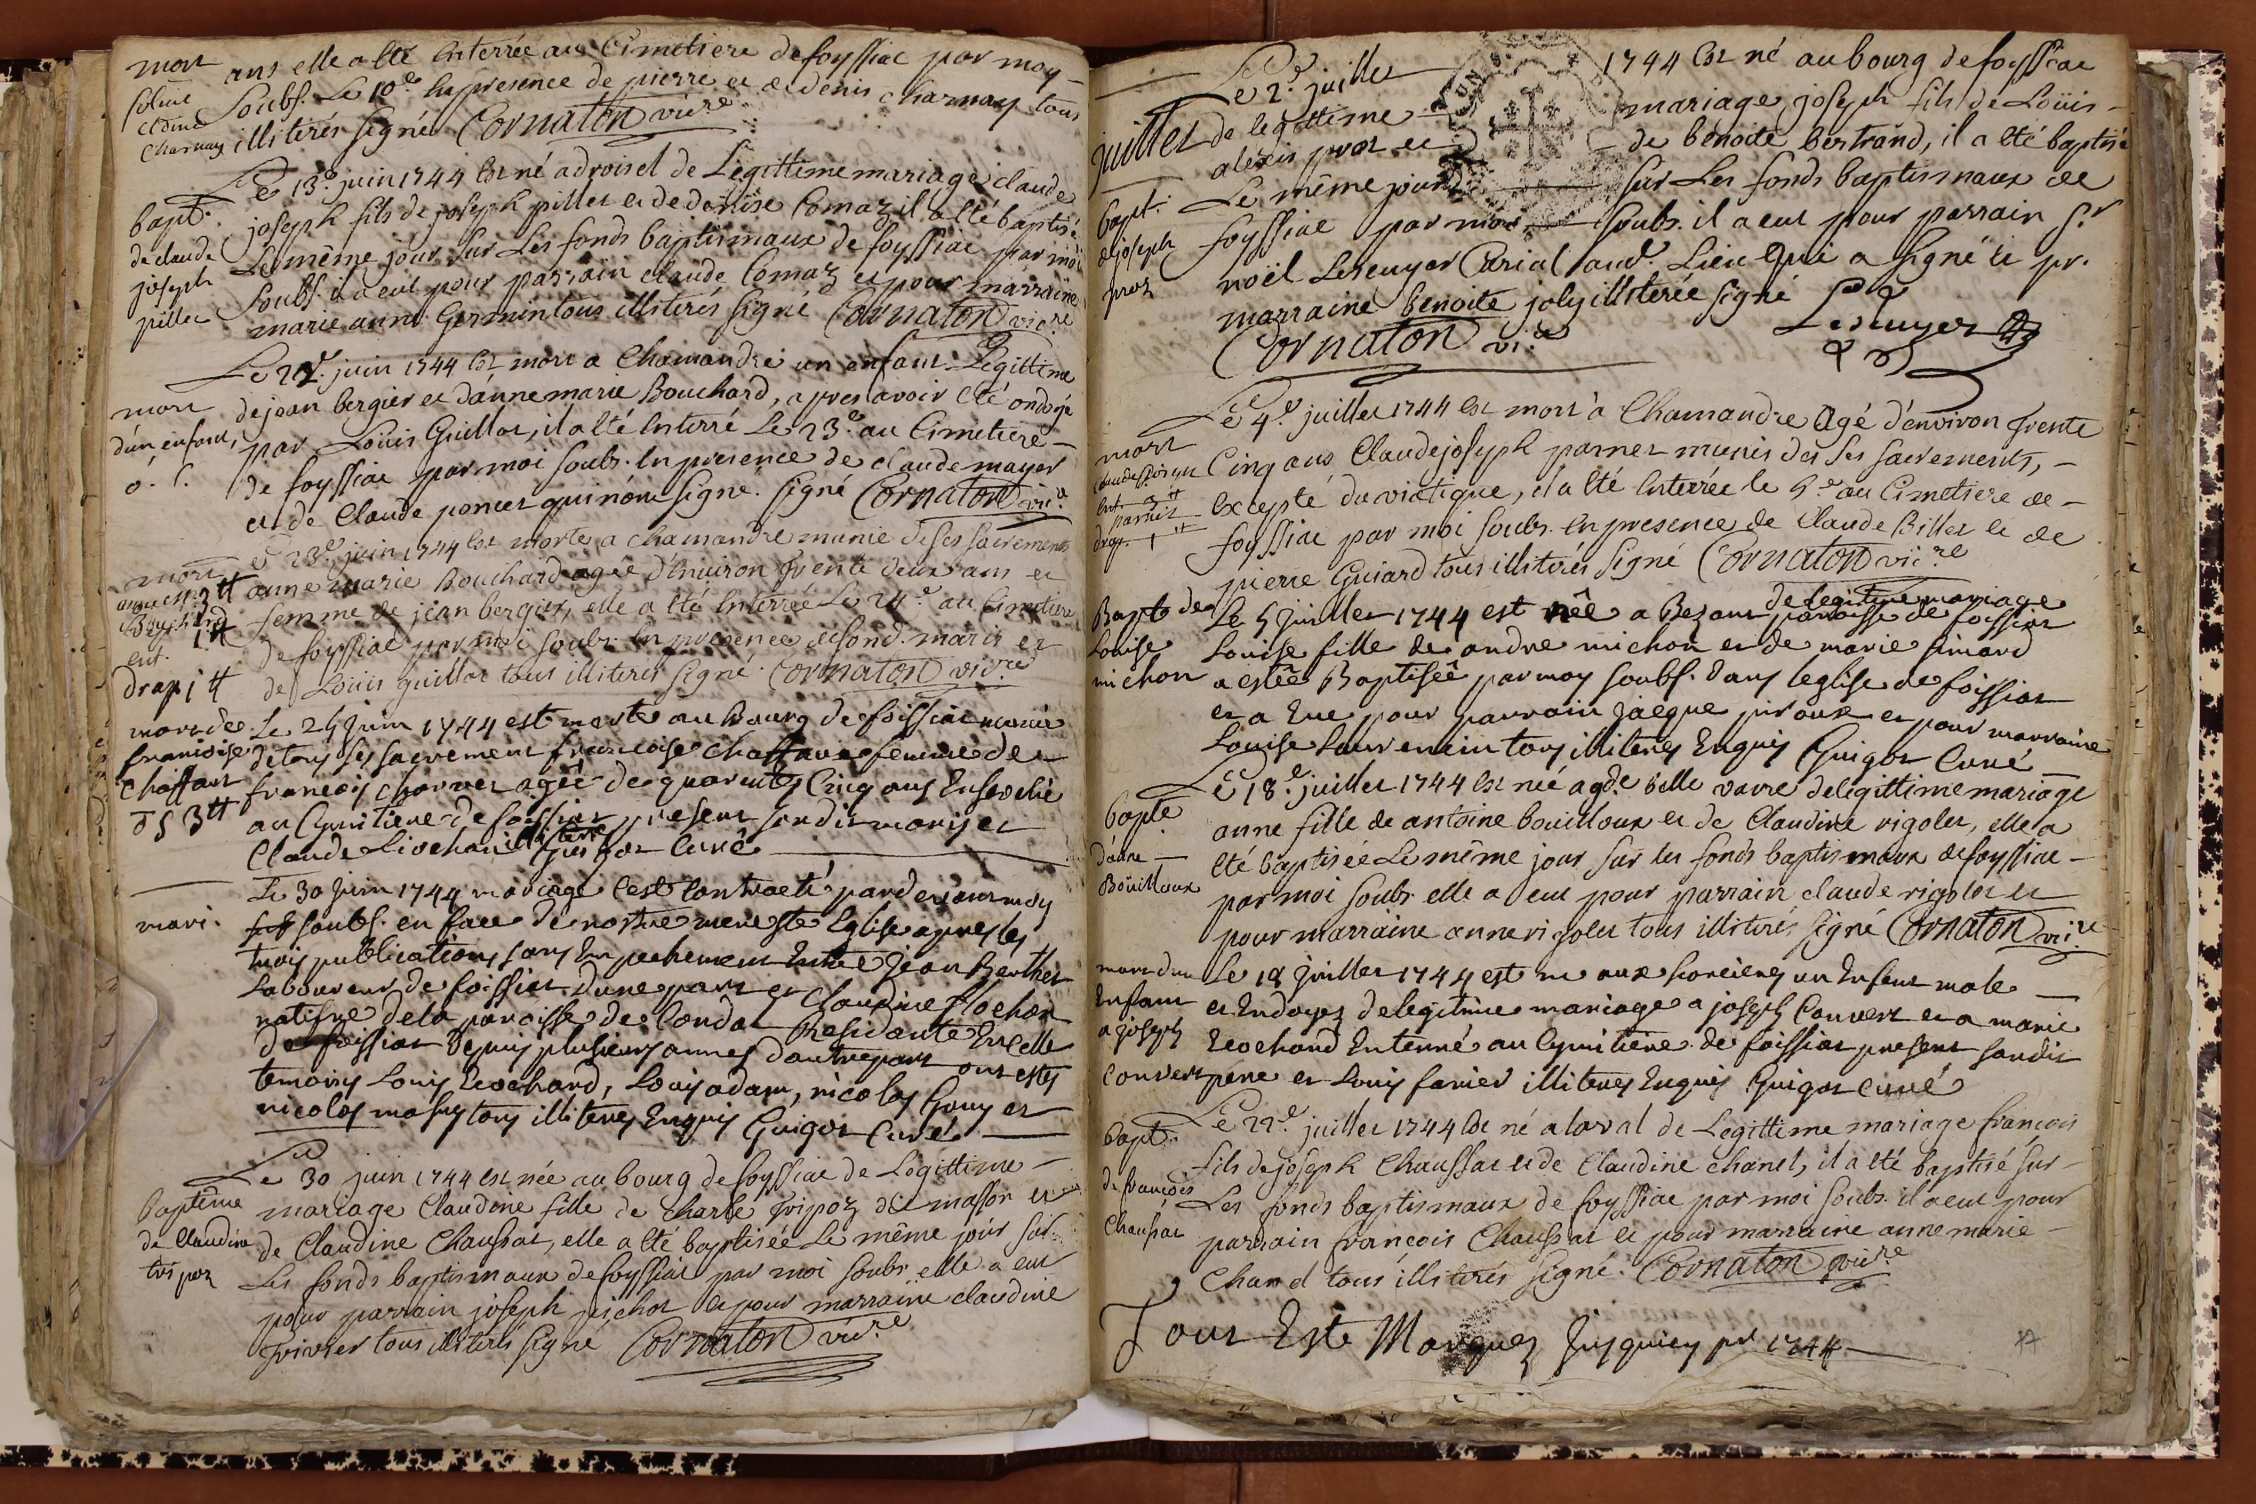 mort
ans elle a été Enterrée au Cimetiere de foyssiac par moy
Soubs. Le 10e En presence de pierre et de denis charnay tous
et dine
charnay
illiterés signé Cornaton vicre
Le 13e juin 1744 Est né a droisel de Legittime mariage claude
bapt.
de claude
joseph
pillet
joseph fils de joseph pillet et de denise Comaz il a été baptisé
Le même jour sur Les fonds baptismaux de foyssiac par moi
Soubs. il a eut pour parrain claude Comaz et pour marraine
marie anne Germin tous illiterés signé Cornaton vicre
Le 22e juin 1744 Est mort a Chamandré un enfant Legittime
mort
d'un enfant,
de jean bergier et d'anne marie Bouchard, apres avoir été ondoyé
par Louis Guillot, il a été Enterré Le 23e au Cimetiere
de foyssiac par moi soubs. En presence de claude mayer
et de Claude poncet qui n'ont signe. signé Cornaton vic.
Le 23e juin 1744 Est morte a chamandré munie de ses sacrements
mort
Bouchard
ent.
drap 1 ₶
anne marie Bouchard agée d'Environ trente deux ans et
femme de jean bergier, elle a été Enterrée Le 24e au Cimetiere
de foyssiac par moi soubs. En presence de sond. maris et
de Loüis guillot tous illiterés signé Cornaton vicre
mort de
francoise
Chaffaut
3 ₶
Le 25 Juin 1744 est morte au Bourg de foissiat munie
de tous ses sacrement francoise Chaffaut femme de
francois charvet agée de quarente Cinq ans Ensevelie
au Cymitiere de foissiat present sondit maris et
Claude Liochon illiteré Guigot Curé
Le 30 Juin 1744 mariage C'est Contracté pardevant moy
mari.
soubs. en face de nostre mere ste Eglise apres les
trois publications sans Enpechement Entre Jean Berthet
Laboureur de foissiat d'une part et Claudine flochon
natifve de la paroisse de Condal Residante En celle
de foissiat depuis plusieurs annes d'autre part ont estes
temoins Louis Leochard, Louis adam, nicolas Gouy et
nicolas mathy tous illiteres Enquis Guigot Curé
Le 30 juin 1744 est née au bourg de foyssiac de Legittime
baptême
de Claudine
tripoz
mariage Claudine fille de Charle Tripoz dit masson et
de Claudine Chaussat, elle a été baptisée Le même jour sur
Les fonds baptismaux de foyssiac par moi soubs. elle a eut
pour parrain joseph pichot et pour marraine claudine
tous illiterés signé Cornaton vicre
Le 2e juillet 1744 Est né au bourg de foyssiac
juillet
de legittime mariage joseph fils de Loüis
alexis proz et de benoite bertrand, il a été baptisé
bapt.
de joseph
proz
Le même jour sur Les fonds baptismaux de
foyssiac par moi soubs. il a eut pour parrain Sr
noël Lescuyer Curial aud. Lieu Qui a signé et pr.
marraine benoite joly illiterée signé Lescuyer
Cornaton vic.
Le 4e juillet 1744 Est mort a Chamandre Agé d'environ trente
mort
parnet
Cinq ans Claude joseph parnet munis des ses sacrements,
Excepté du viatique, il a été Enterrée le 5e au Cimetiere de
foyssiac par moi soubs. En presence de Claude Billet et de
pierre Guiard tous illiterés signé Cornaton vicre
de legitime mariage
Bapte de
Louise
michon
Le 5 Juillet 1744 est née a Bezant paroisse de foissiat
Louise fille de andre michon et de marie simard
a estée Baptisée par moy soubs. dans leglise de foissiat
et a Eue pour parrain jacque piroux et pour marraine
Louise Louvencin tous illiteres Enquis Guigot Curé
Le 18e juillet 1744 Est née a gde. belle vavre de legittime mariage
bapte
d'anne
Boüilloux
anne fille de antoine bouilloux et de Claudine rigolet, elle a
été baptisée Le même jour sur les fonds baptismaux de foyssiac
par moi soubs. elle a eut pour parrain claude rigolet et
pour marraine anne rigolet tous illiterés signé Cornaton vicre
mort d'un
Enfant
a joseph
Convert
Le 18 Juillet 1744 est ne aux honcieres un Enfent male
et Endoyez de legitime mariage a joseph Convert et a marie
Leochard Enterré au Cymitiere de foissiat present sondit
pere et Louis farier illiteres Enquis Guigot Curé
Le 22e juillet 1744 Est né a laval de Legittime mariage francois
bapt.
de francois
Chaussat
fils de joseph Chaussat et de Claudine chanel, il a été baptisé sur
Les fonds baptismaux de foyssiac par moi soubs. il a eut pour
parrain francois Chaussat et pour marraine anne marie
Chanel tous illiterés signé Cornaton vicre
Tout Este Marquez Jusquicy pr 1744